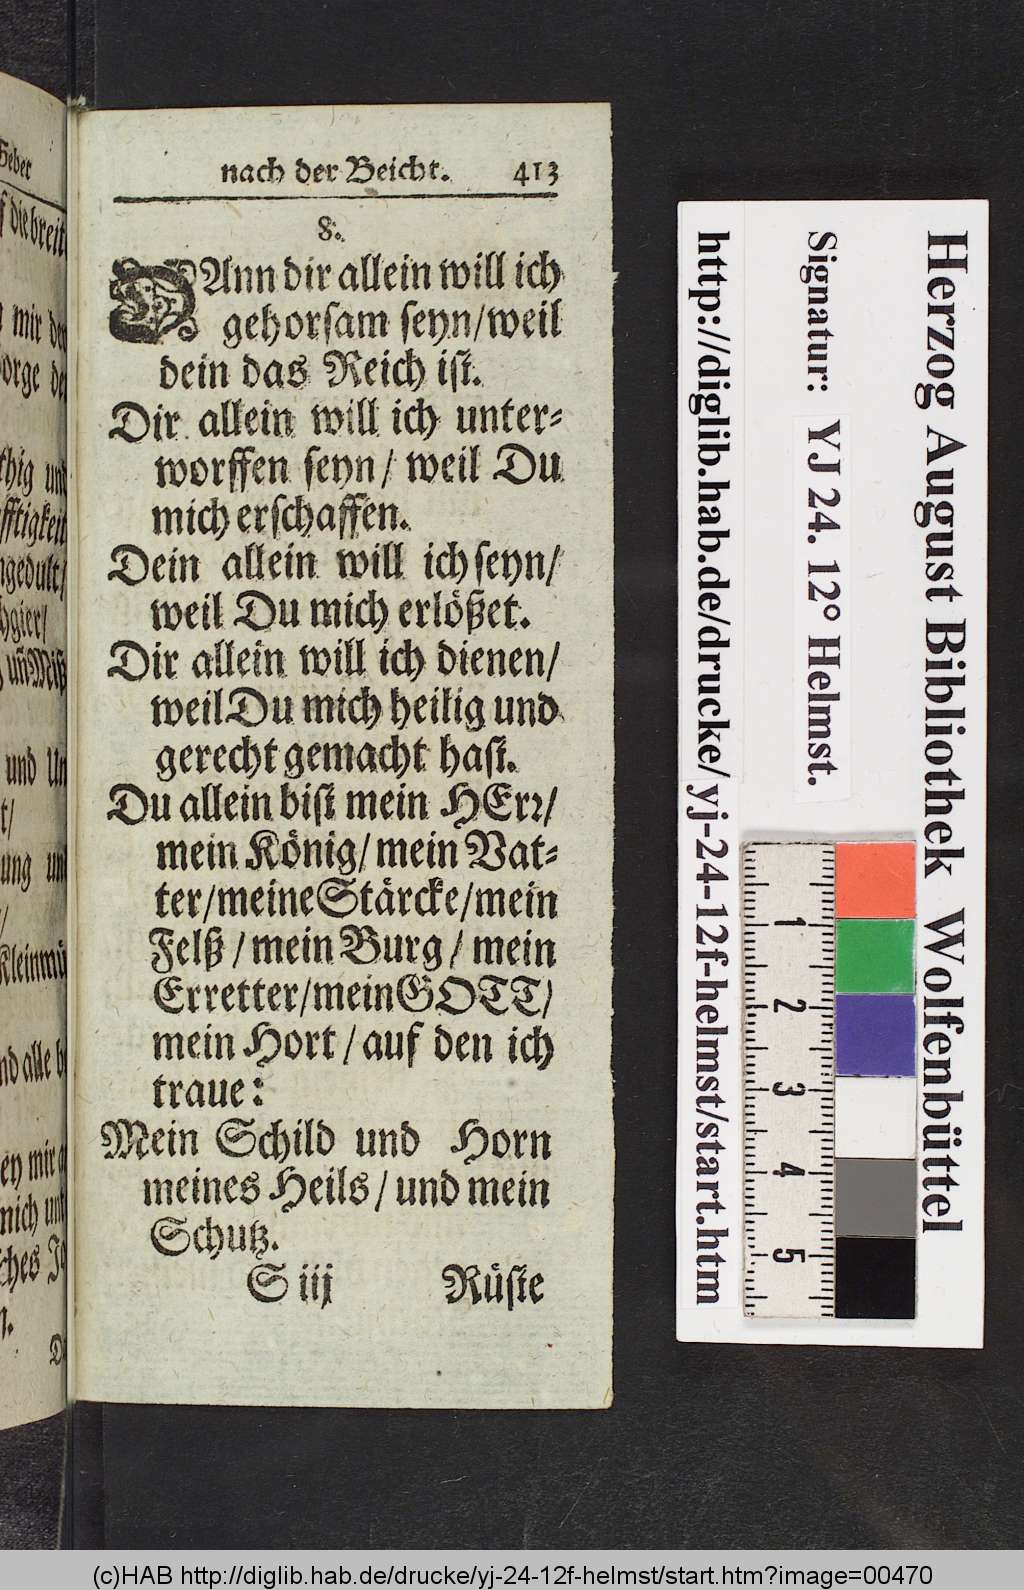 nach der Beicht. 413
8.
DAnn dir allein will ich
gehorsam seyn/weil
dein das Reich ist.
Dir allein will ich unter-
worffen seyn/ weil Du
mich erschaffen.
Dein allein will ich seyn/
weil Du mich erlößet.
Dir allein will ich dienen/
weil Du mich heilig und
gerecht gemacht hast.
Du allein bist mein HErr/
mein König/ mein Vat-
ter/meine Stärcke/mein
Felß / mein Burg / mein
Erretter/mein GOTT/
mein Hort / auf den ich
traue:
Mein Schild und Horn
meines Heils / und mein
Schutz.
S iij Rüste
Herzog August Bibliothek Wolfenbüttel
Signatur: YJ 24. 12° Helmst.
http://diglib.hab.de/drucke/yj-24-12f-helmst/start.htm
1
2
3
4
5
die breit
mir den
und
und
ung
nd alle
(c)HAB http://diglib.hab.de/drucke/yj-24-12f-helmst/start.htm?image=00470